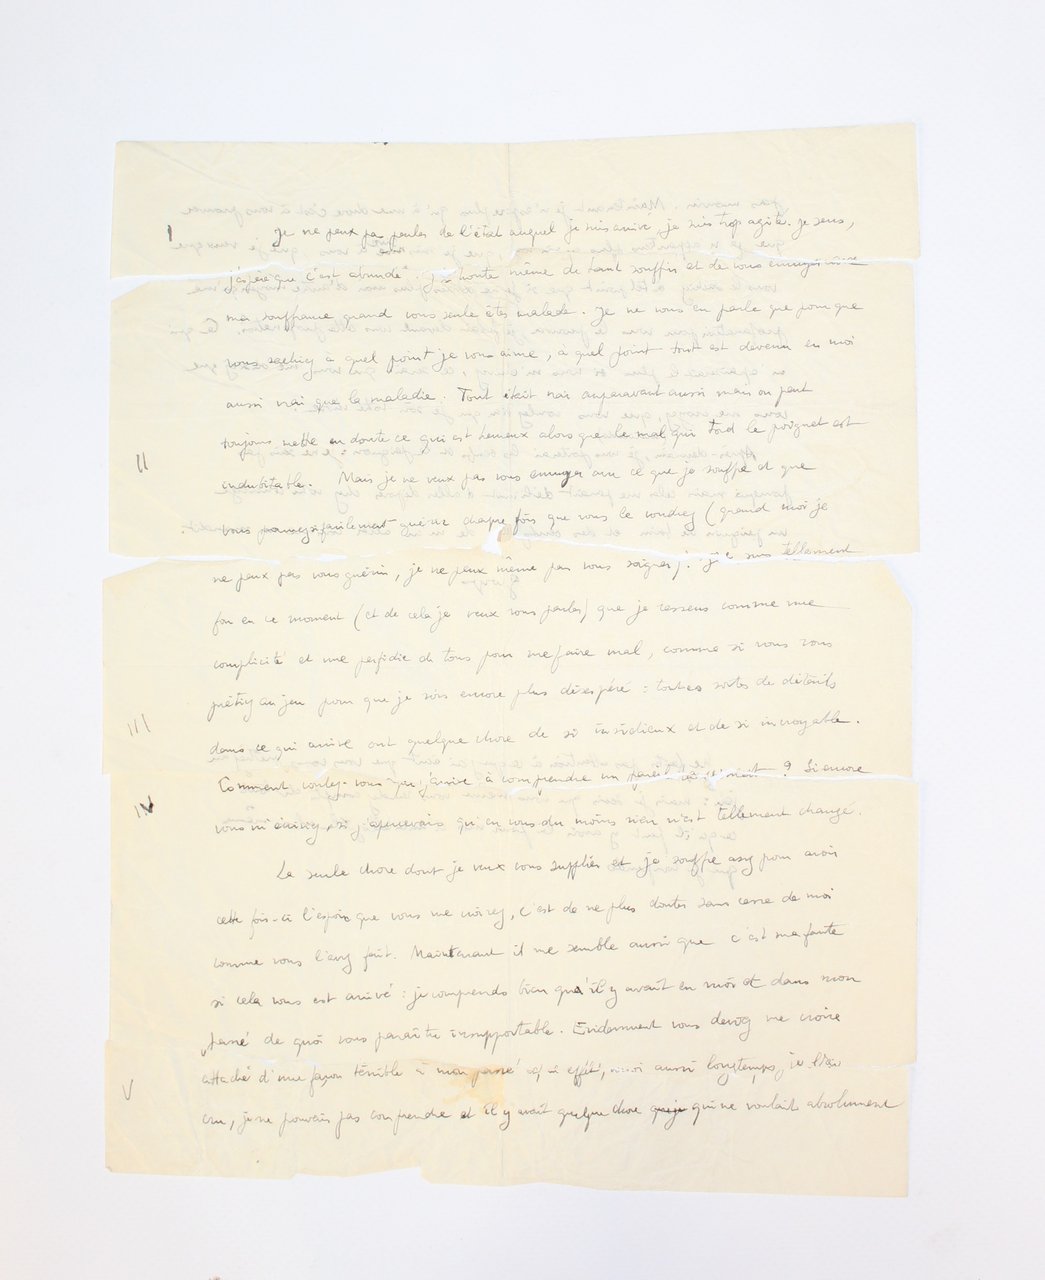 I
je ne peux pas parler de l'état auquel je suis arrivé, je suis trop agité. Je sens,
j'espère que c'est absurde. J'ai honte même de tant souffrir et de vous
ma souffrance quand vous seule êtes malade. Je ne vous en parle que pour que
vous sachiez à quel point je vous aime, à quel point tout est devenu en moi
aussi vrai que la maladie. Tout était vrai auparavant aussi mais on peut
II
toujours mettre en doute ce qui est heureux alors que le mal qui tord le poignet est
indubitable. Mais je ne veux pas vous ennuyer avec ce que je souffre et que
vous pourriez facilement guérir chaque fois que vous le voudrez (quand moi je
ne peux pas vous guérir, je ne peux même pas vous soigner). Je suis tellement
fou en ce moment (et de cela je veux vous parler) que je ressens comme une
complicité et une perfidie de tous pour me faire mal, comme si vous vous
prêtiez au jeu pour que je sois encore plus désespéré : toutes sortes de détails
III
dans ce qui arrive ont quelque chose de si insidieux et de si incroyable.
Comment voulez-vous que j'arrive à comprendre un pareil ? Si encore
IV
vous m'écriviez, si j'apercevais qu'en vous du moins rien n'est tellement changé.
La seule chose dont je veux vous supplier et je souffre assez pour avoir
cette fois-ci l'espoir que vous me croirez, c'est de ne plus douter sans cesse de moi
comme vous l'avez fait. Maintenant il me semble aussi que c'est ma faute
si cela vous est arrivé : je comprends bien qu'il y avait en moi et dans mon
passé de quoi vous paraître insupportable. Evidemment vous devez me croire
attaché d'une façon terrible à mon passé et, en effet, moi aussi longtemps, je l'ai
V
cru, je ne pouvais pas comprendre et il y avait quelque chose qui ne voulait absolument